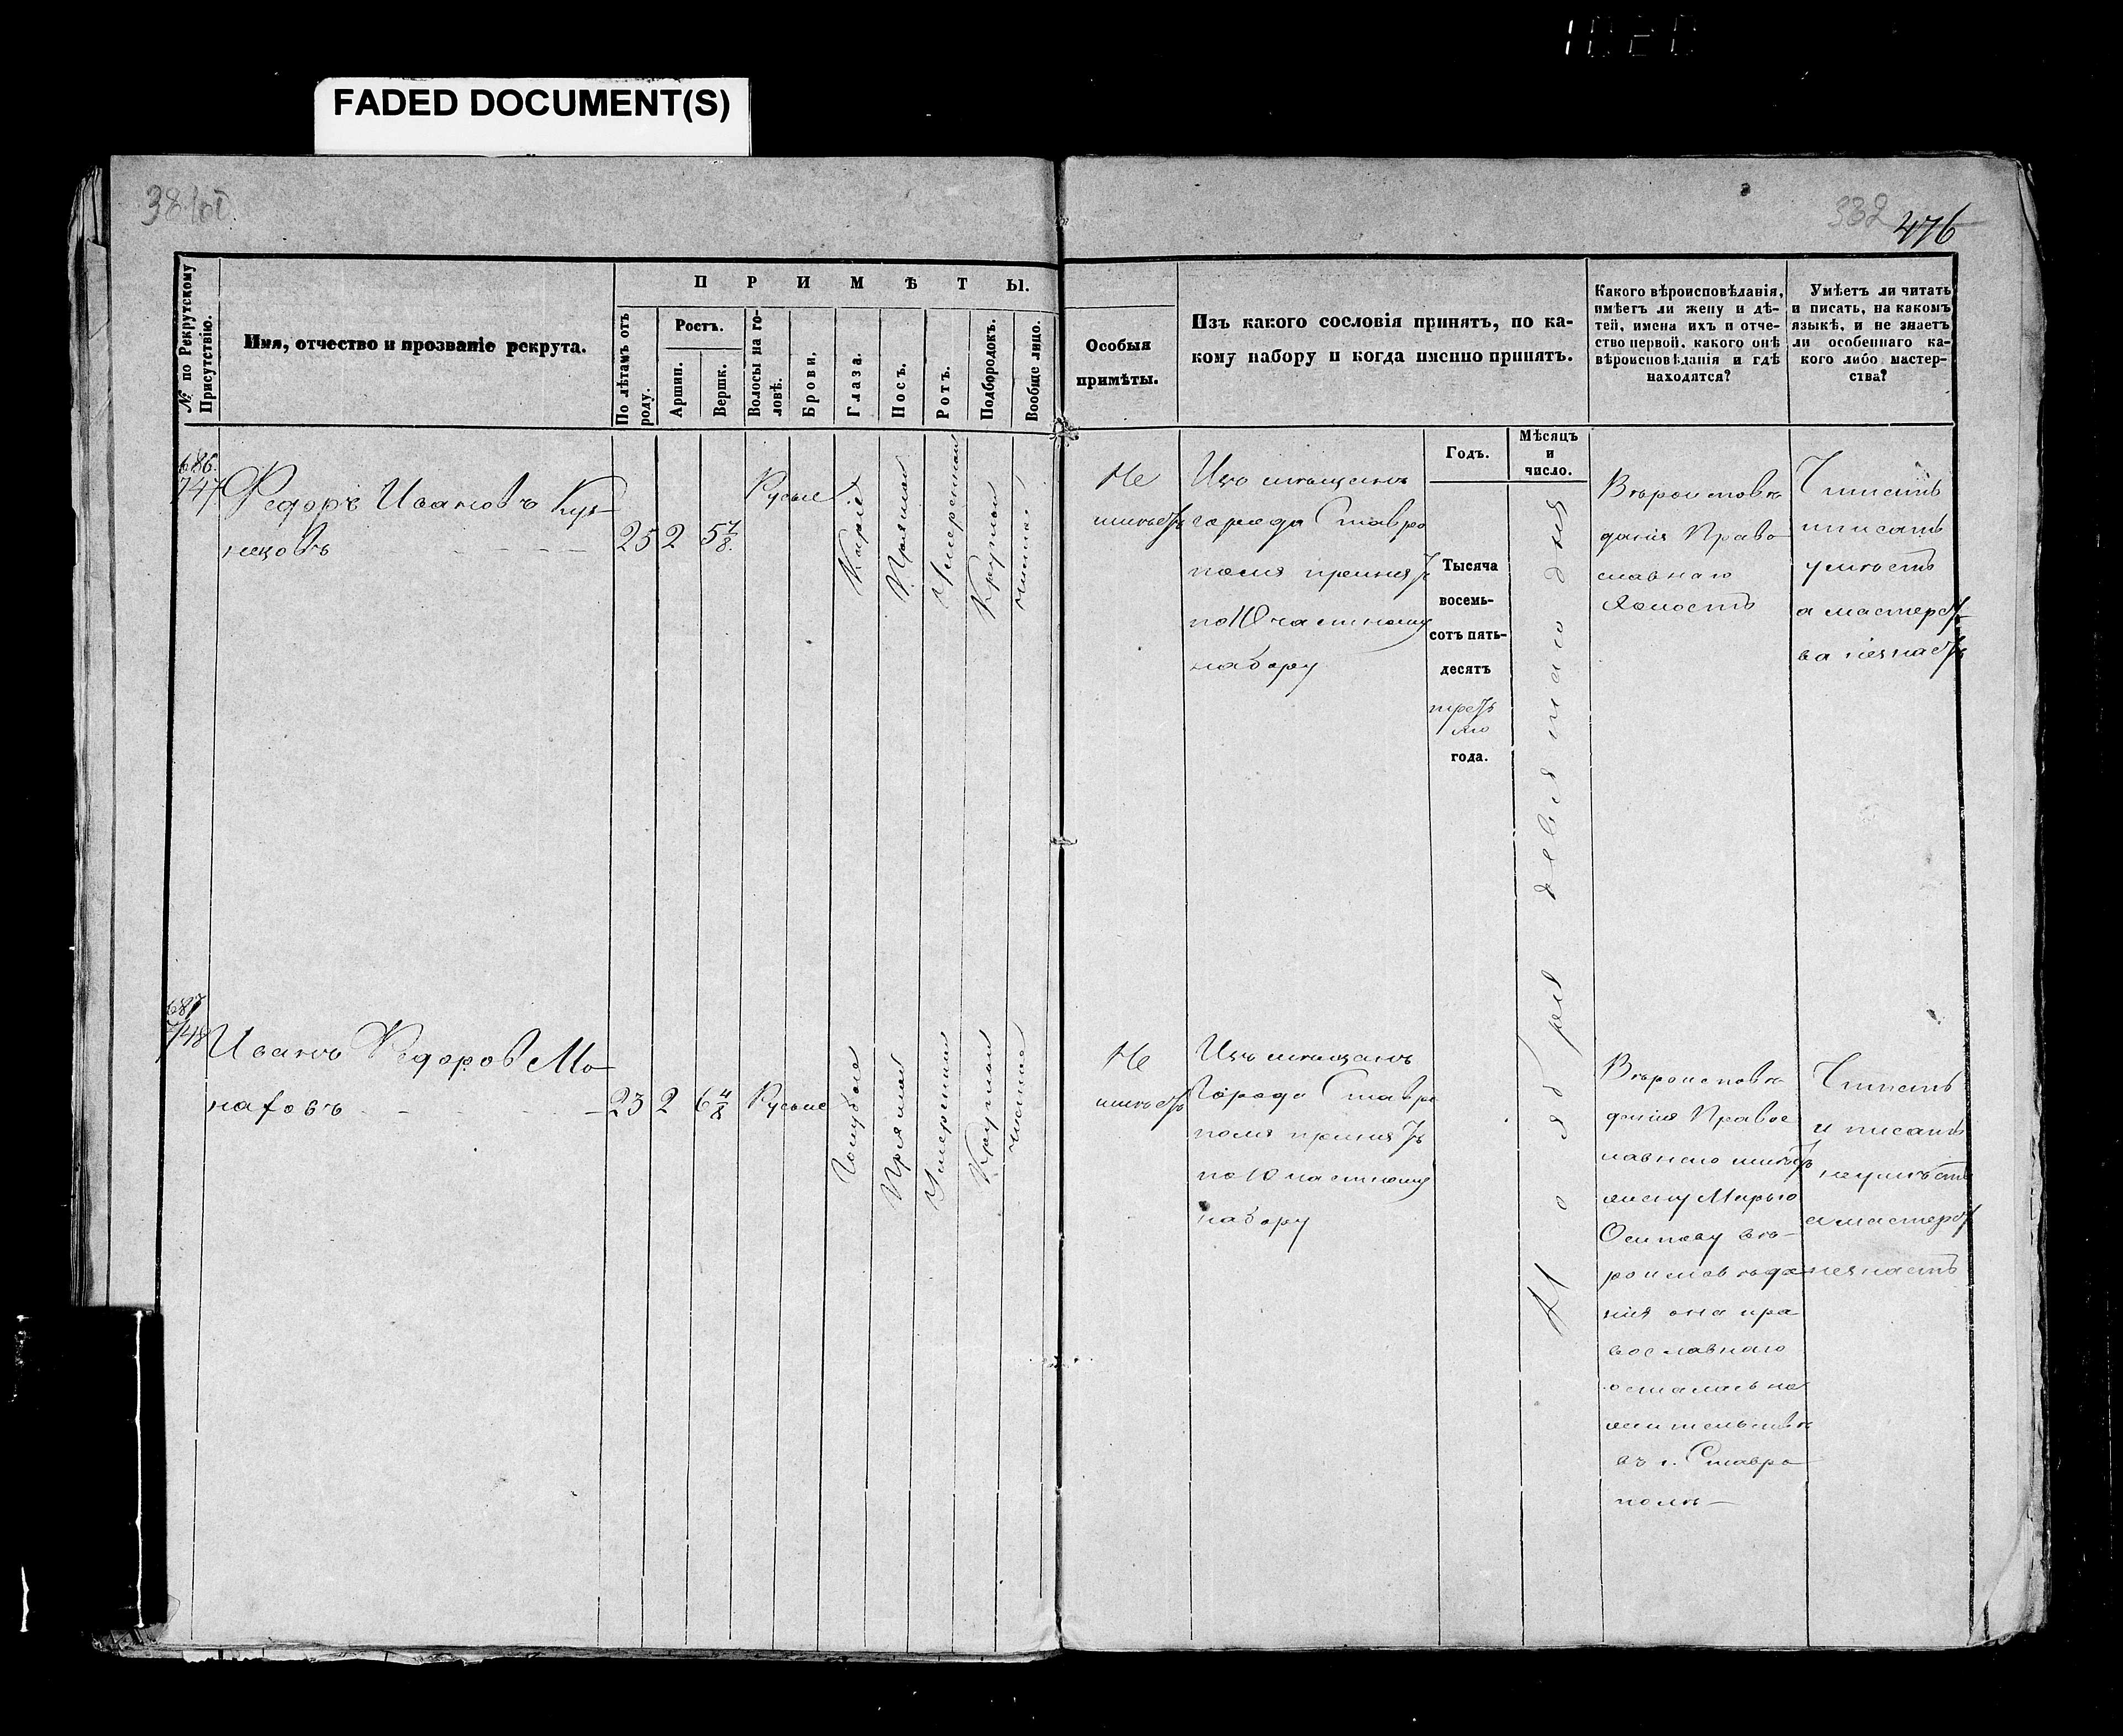 1020
FADED DOCUMENT(S)
332
476
№ по Рекрутскому Присутствію.
Имя, отчество и прозваніе рекрута.
ПРИМѢТЫ.
По лѣтамъ отъ роду.
Ростъ.
Аршин.
Вершк.
Волосы на го-
ловѣ.
Брови.
Глаза.
Носъ.
Ротъ.
Подбородокъ.
Вообще лицо.
Особыя
примѣты.
Изъ какого сословія принятъ, по ка-
кому набору и когда именно принятъ.
Какого вѣроисповѣданія,
имѣетъ ли жену и дѣ-
тей, имена ихъ и отче-
ство первой, какого онѣ
вѣроисповѣданія и гдѣ
находятся?
Умѣетъ ли читать
и писать, на какомъ
языкѣ, и не знаетъ
ли особеннаго ка-
кого либо мастер-
ства?
Годъ.
Мѣсяцъ
и
число.
686.
747
Федоръ Ивановъ Куз-
нецовъ
25
2
5 7/8.
Русые
Каріе
Прямой
Умеренный
Круглой
чистое
Не
имѣетъ
Изъ мѣщанъ
города Ставро
поля принятъ
по 10 частному
набору
Тысяча
восемь-
сотъ пять-
десятъ
третья
го
года.
Ноября девятаго дня
Вѣроисповѣ
данія Право
славнаго
Холостъ
Читать
и писать
умѣетъ
а мастерст
ва незнаетъ
687
748
Иванъ Федоровъ Мо-
наховъ
23
2
6 4/8
Русые
Голубые
Прямой
Умеренный
Круглой
чистое
Не
имѣетъ
Изъ мѣщанъ
Города Ставро
поля принятъ
по 10 частному
набору
Вѣроисповѣ
данія Правос
лавнаго имѣетъ
жену Марью
Осипову вѣ-
роисповѣда
нія она пра
вославнаго
осталась на
жительствѣ
въ г. Ставро
полѣ
Читать
и писать
неумѣетъ
а мастерст
незнаетъ